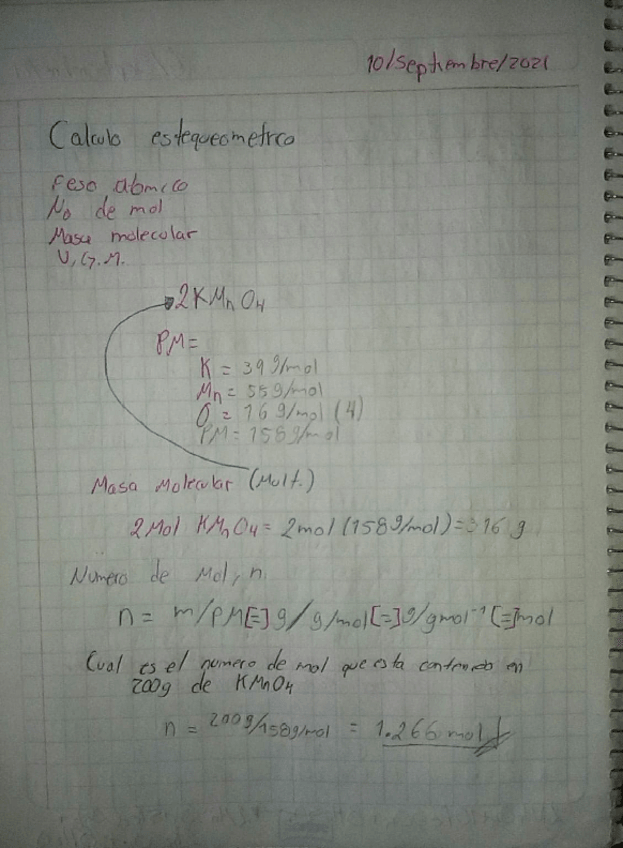 10/Septiembre/2021
Calculo estequeometrco
Peso atomico
No de mol
Masa molecular
U.G.M.
2KMnO4
PM=
K = 39 g/mol
Mn = 55g/mol
O = 16 g/mol (4)
PM = 158 g/mol
Masa Molecular (Mult.)
2 Mol KMnO4 = 2mol (158 g/mol) = 316 g
Numero de Mol, n
n = m/PM [=] g/g/mol [=] g/gmol⁻¹ [=] mol
Cual es el numero de mol que esta contenido en
200g de KMnO4
n = 200g/158g/mol = 1.266 mol